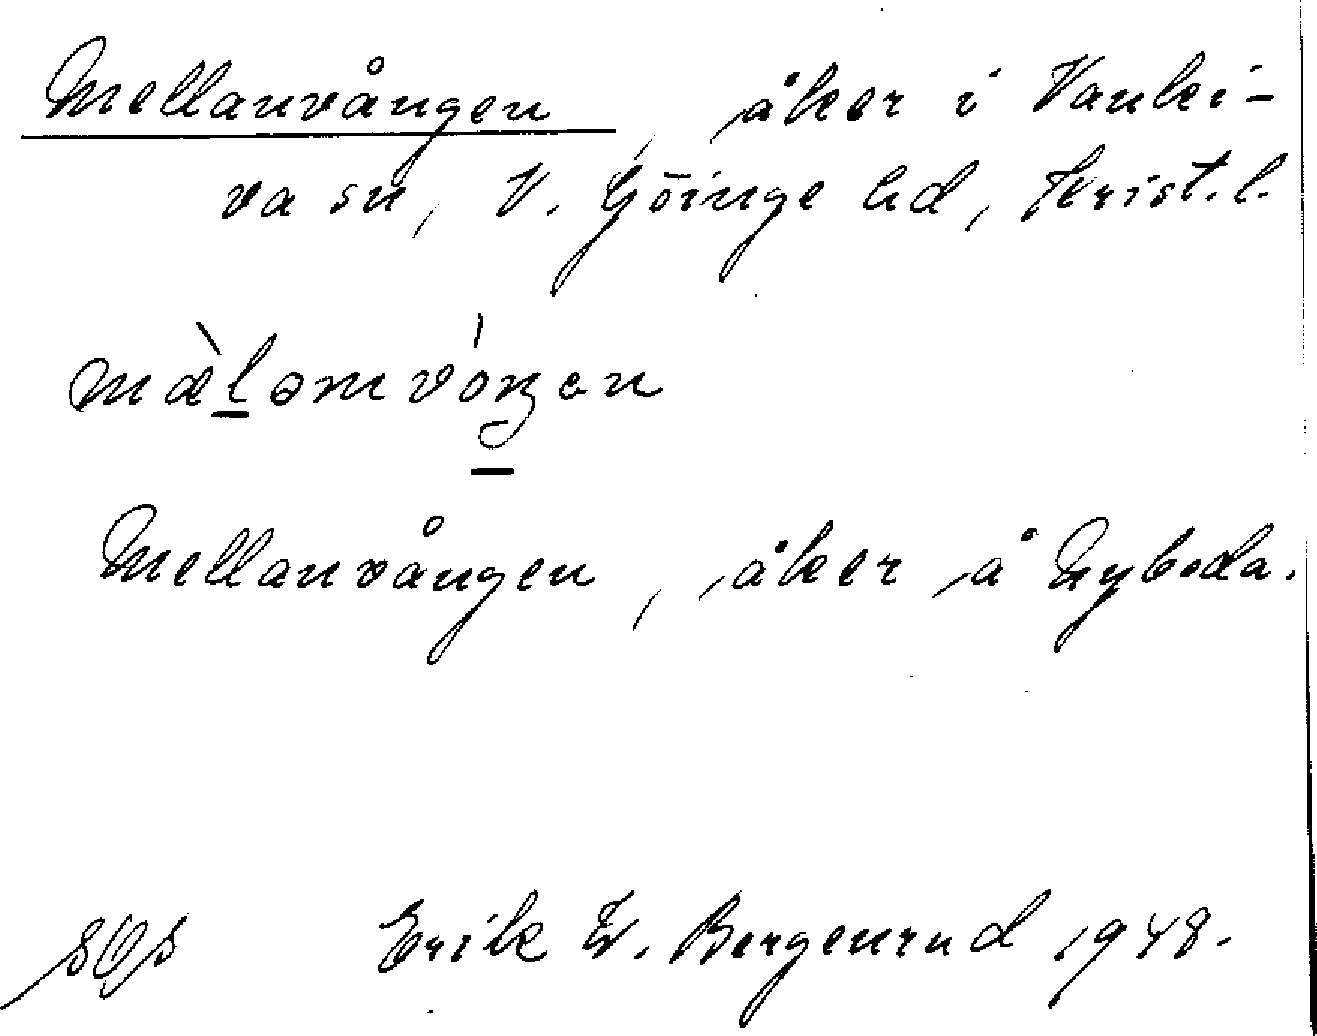 Mellanvången, åker i Vanki-
va sn, V. Göinge hd, Krist.l.
Mellanvången, åker å Gyboda.
Erik W. Bergenrud 1948.